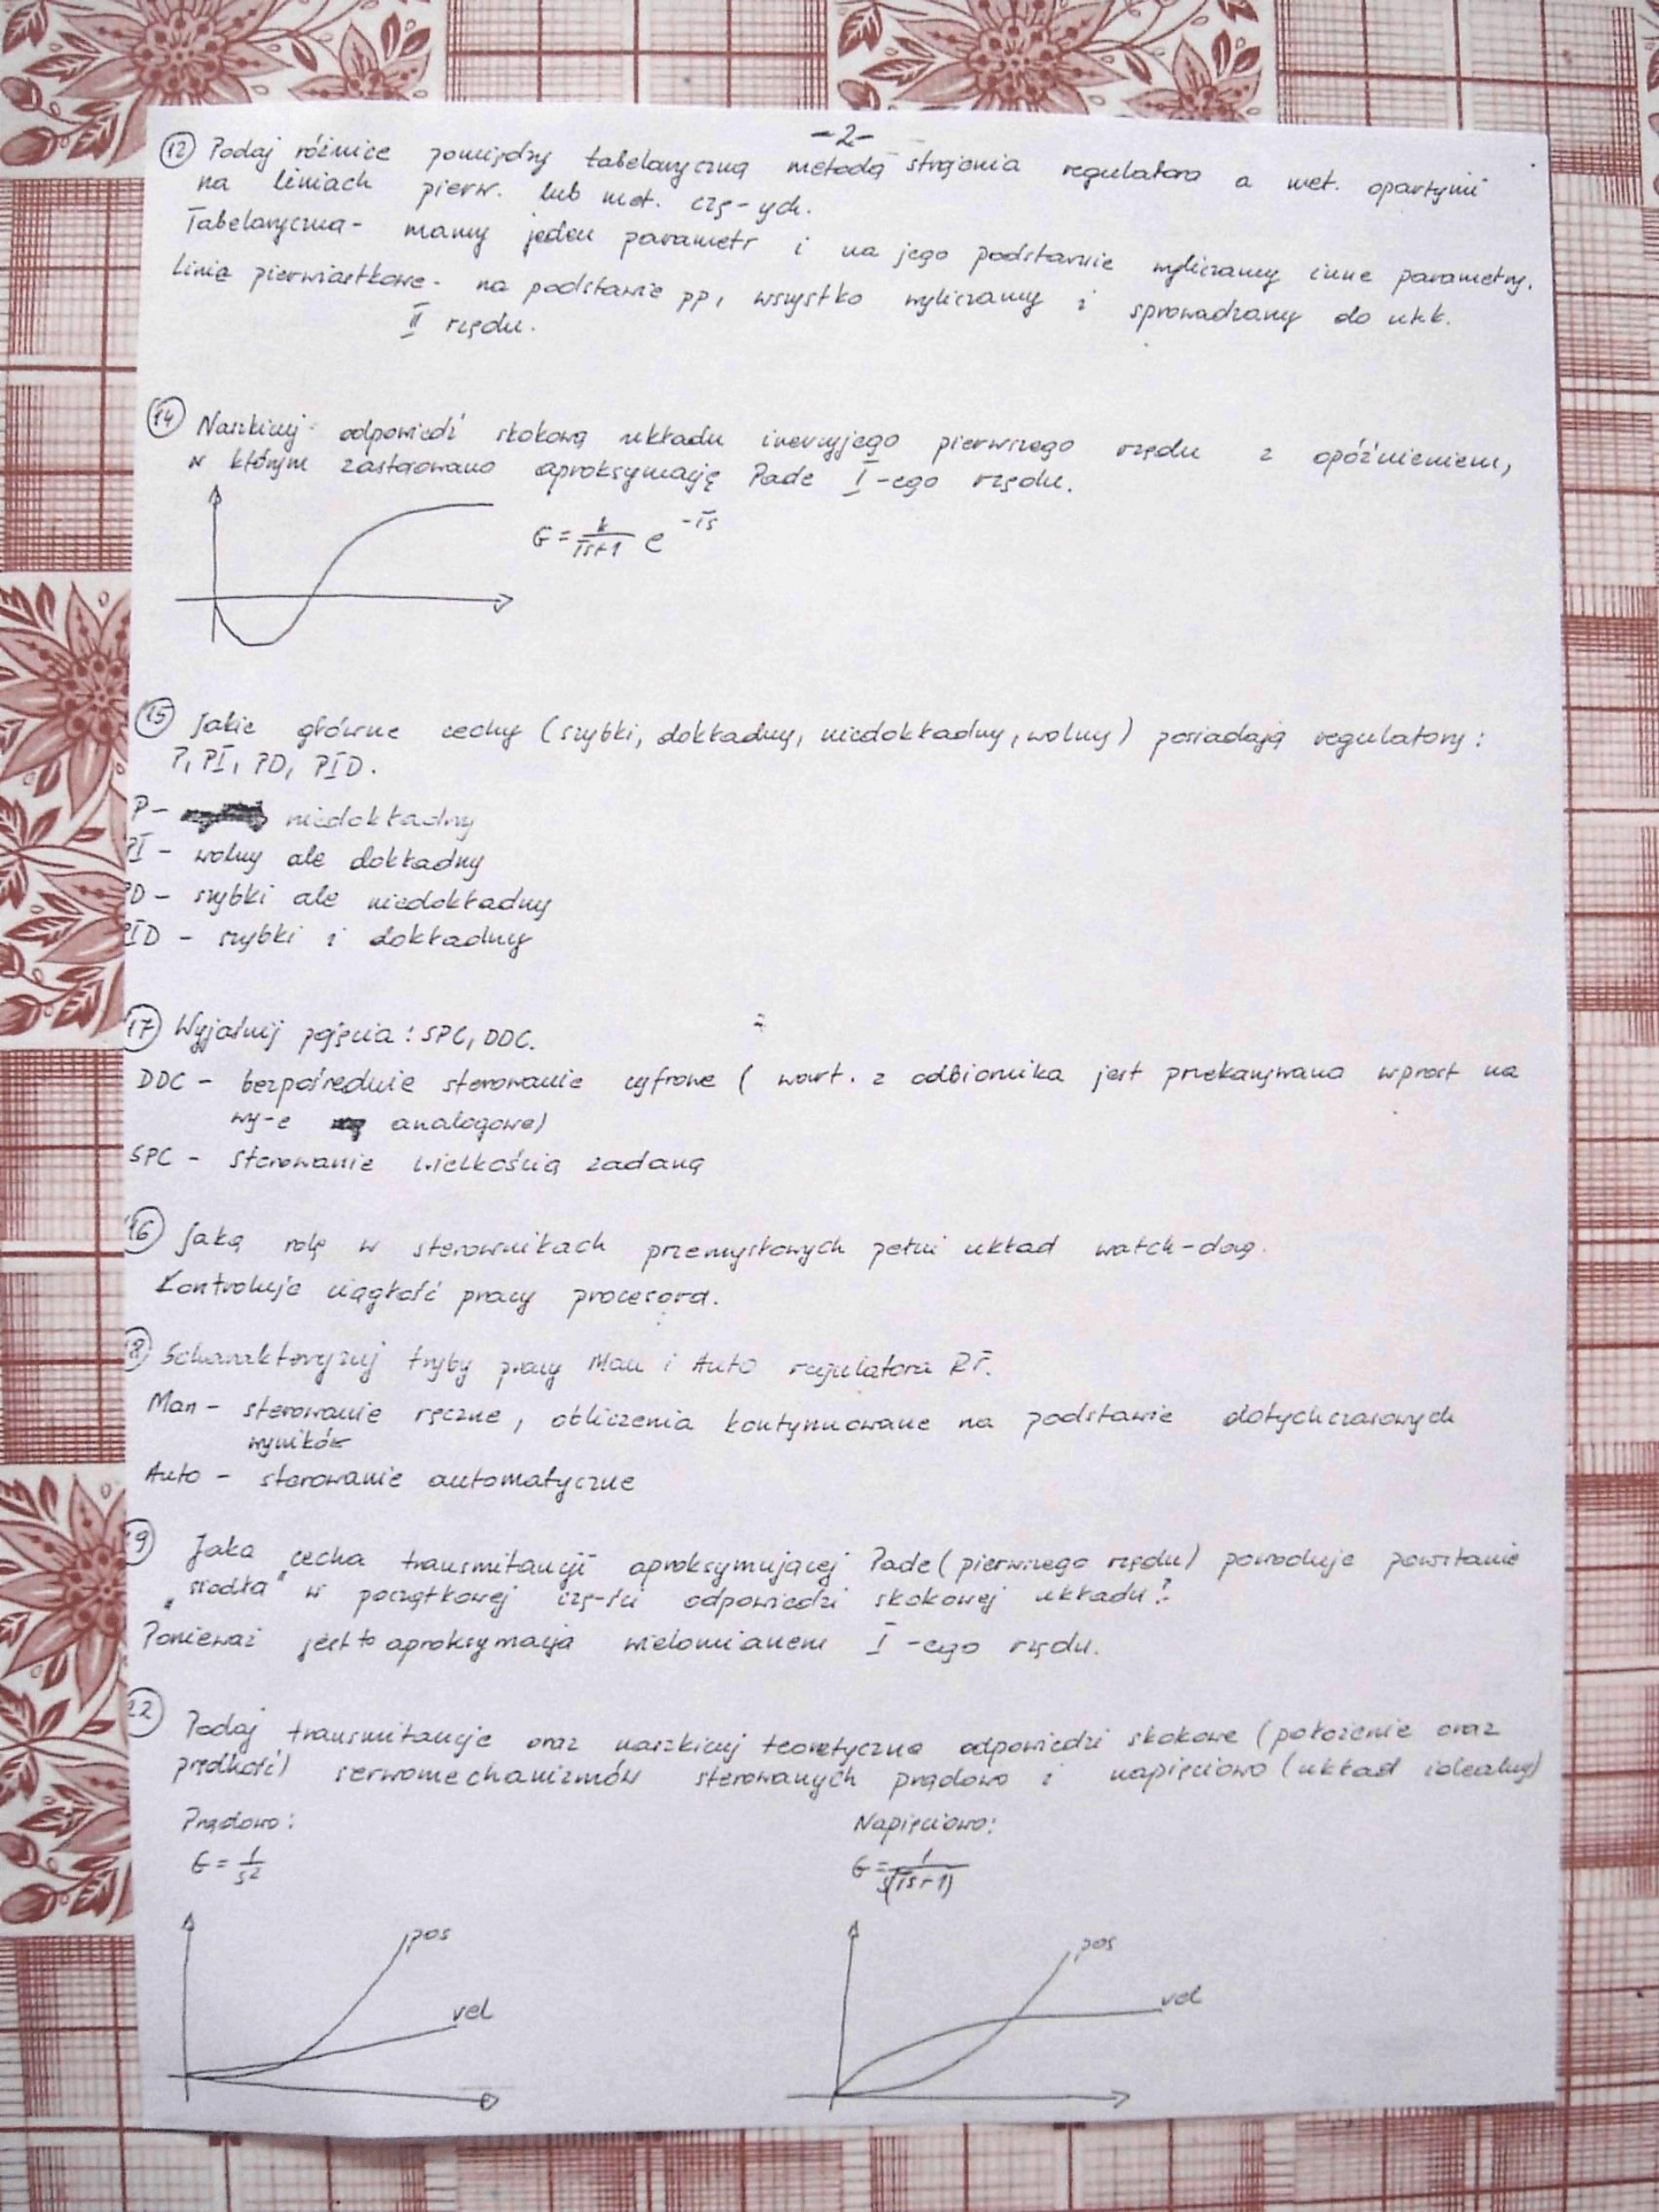 -2-
12 Podaj różnice pomiędzy tabelaryczną metodą strojenia regulatora a met. opartymi
na liniach pierw. lub met. czę-ych.
Tabelaryczna - mamy jeden parametr i na jego podstawie wyliczamy inne parametry.
Linie pierwiastkowe - na podstawie pp, wszystko wyliczamy i sprowadzamy do ukł.
II rzędu.
14 Naszkicuj odpowiedź skokową układu inercyjego pierwszego rzędu z opóźnieniem,
w którym zastosowano aproksymację Pade I-ego rzędu.
G = k/(Ts+1) e^-Ts
15 Jakie główne cechy (szybki, dokładny, niedokładny, wolny) posiadają regulatory:
P, PI, PD, PID.
P - niedokładny
PI - wolny ale dokładny
PD - szybki ale niedokładny
PID - szybki i dokładny
17 Wyjaśnij pojęcia: SPC, DDC.
DDC - bezpośrednie sterowanie cyfrowe ( wart. z odbiornika jest przekazywana wprost na
wy-e analogowe)
SPC - sterowanie wielkością zadaną
16 Jaką rolę w sterownikach przemysłowych pełni układ watch-dog.
Kontroluje ciągłość pracy procesora.
18 Scharakteryzuj tryby pracy Man i Auto regulatora RT.
Man - sterowanie ręczne, obliczenia kontynuowane na podstawie dotychczasowych
wyników
Auto - sterowanie automatyczne
19 Jaka cecha transmitancji aproksymującej Pade (pierwszego rzędu) powoduje powstanie
"siodła" w początkowej czę-ści odpowiedzi skokowej układu?
Ponieważ jest to aproksymacja wielomianem I-ego rzędu.
22 Podaj transmitancje oraz naszkicuj teoretyczne odpowiedzi skokowe (położenie oraz
prędkość) serwomechanizmów sterowanych prądowo i napięciowo (układ idealny)
Prądowo: Napięciowo:
G = 1/s² G = 1/s(Ts+1)
pos pos
vel vel